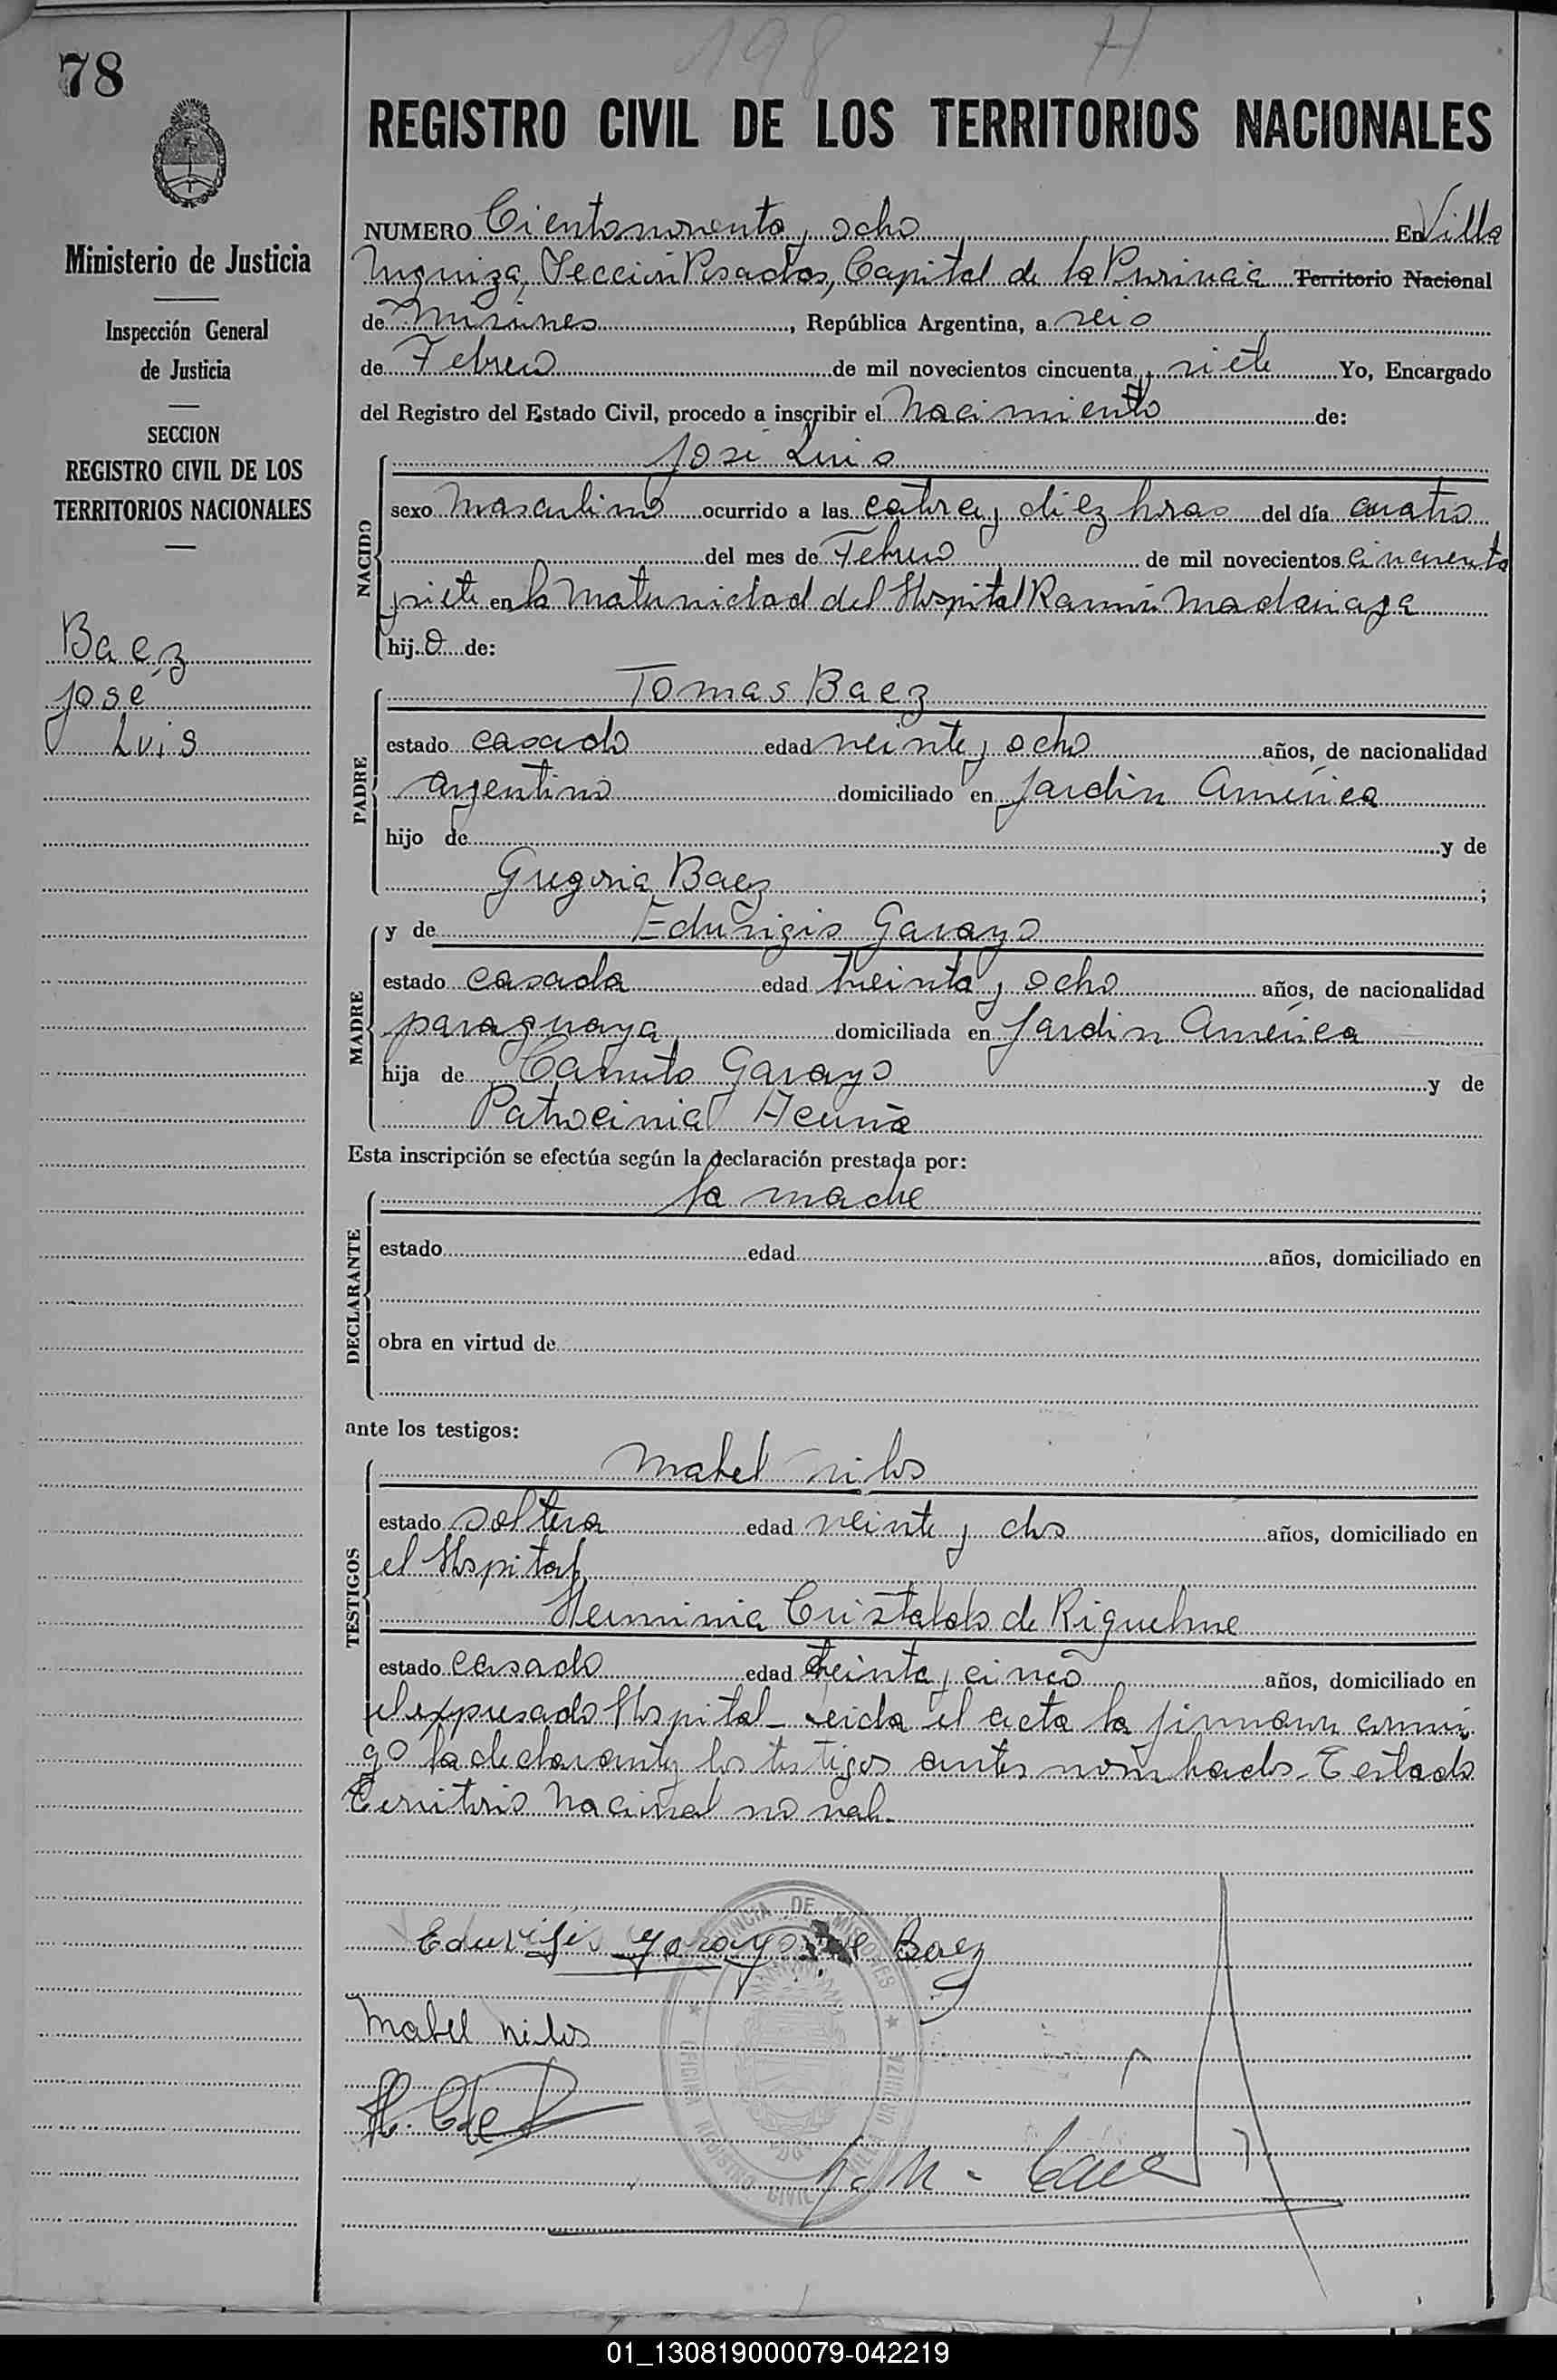 198 H
78
REGISTRO CIVIL DE LOS TERRITORIOS NACIONALES
Ministerio de Justicia
Inspección General
de Justicia
SECCION
REGISTRO CIVIL DE LOS
TERRITORIOS NACIONALES
Baez
José
Luis
NUMERO Ciento noventa y ocho En Villa
Urquiza, Sección Posadas, Capital de la Provincia Territorio Nacional
de Misiones, República Argentina, a seis
de Febrero de mil novecientos cincuenta y siete Yo, Encargado
del Registro del Estado Civil, procedo a inscribir el Nacimiento de:
NACIDO
José Luis
sexo masculino ocurrido a las catorce y diez horas del día cuatro
del mes de Febrero de mil novecientos cincuenta
y siete en la Maternidad del Hospital Ramón Madariaga
hij o de:
PADRE
Tomas Baez
estado casado edad veinte y ocho años, de nacionalidad
argentino domiciliado en Jardin América
hijo de y de
Gregoria Baez;
MADRE
y de Eduvigis Garayo
estado casada edad treinta y ocho años, de nacionalidad
paraguaya domiciliada en Jardin América
hija de Camilo Garayo y de
Patrocinia Acuña
Esta inscripción se efectúa según la declaración prestada por:
DECLARANTE
la madre
estado edad años, domiciliado en
obra en virtud de
ante los testigos:
TESTIGOS
Mabel
estado soltera edad veinte y dos años, domiciliado en
el Hospital
Herminia Cristaldo de Riquelme
estado casado edad treinta y cinco años, domiciliado en
el expresado Hospital - Leida el acta la firman conmi
go la declarante y los testigos antes nombrados - Testado
Territorio Nacional no vale.
Eduvigis Garayo de Baez
Mabel
PROVINCIA DE MISIONES
OFICINA REGISTRO CIVIL VILLA URQUIZA
01_130819000079-042219